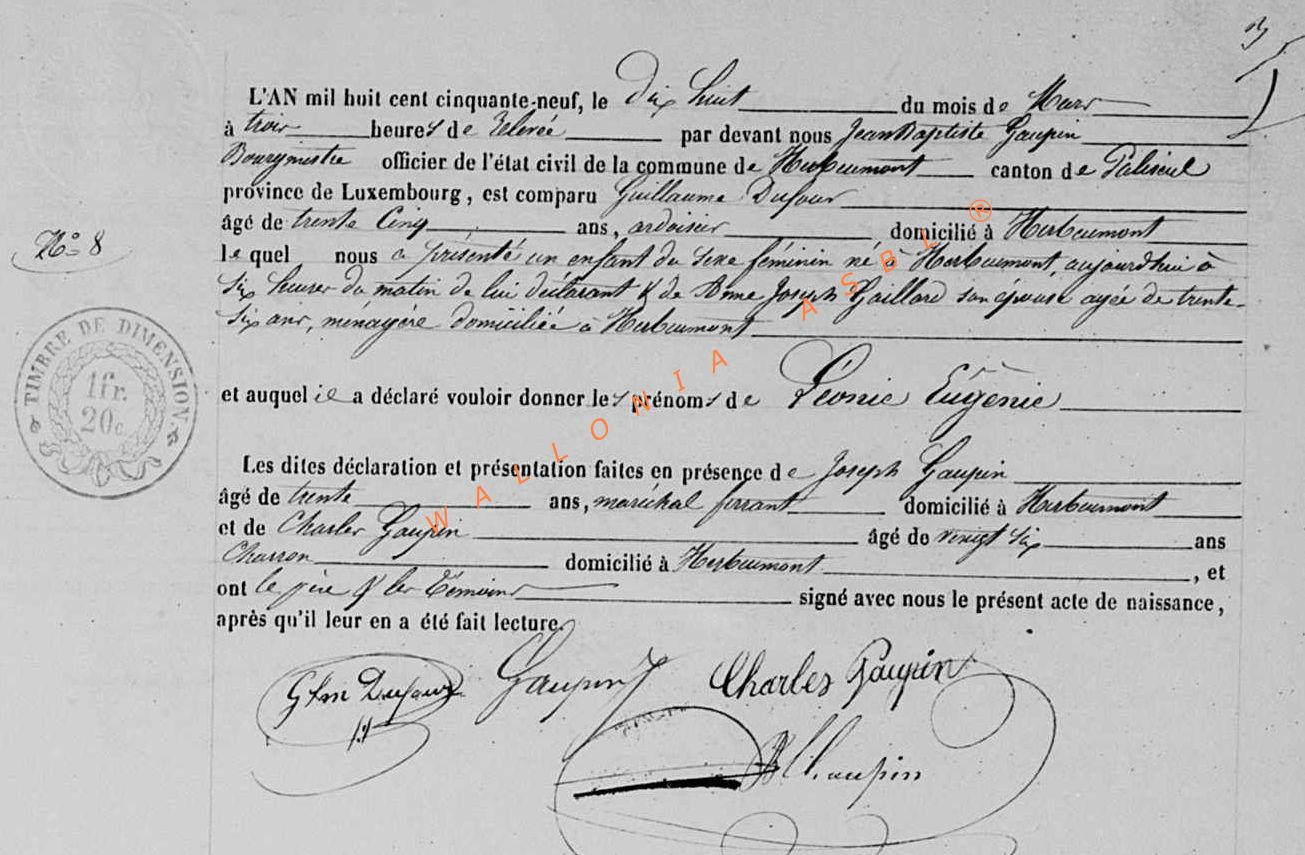 3
L'AN mil huit cent cinquante-neuf, le Dix huit du mois de Mars
à trois heures de relevée par devant nous Jean Baptiste Gaupin
Bourgmestre officier de l'état civil de la commune de Herbeumont canton de Paliseul
province de Luxembourg, est comparu Guillaume Dufour
âgé de trente Cinq ans, ardoisier domicilié à Herbeumont
N° 8
le quel nous a présenté un enfant du sexe féminin né à Herbeumont, aujourdhui à
six heures du matin de lui déclarant & de Anne Joseph Gaillard son épouse agée de trente-
six ans, ménagère domiciliée à Herbeumont
TIMBRE DE DIMENSION
1 fr.
20 c.
et auquel il a déclaré vouloir donner les prénoms de Léonie Eugénie
Les dites déclaration et présentation faites en présence de Joseph Gaupin
âgé de trente ans, maréchal ferrant domicilié à Herbeumont
et de Charles Gaupin âgé de vingt six ans
Charron domicilié à Herbeumont, et
ont le père & les témoins signé avec nous le présent acte de naissance,
après qu'il leur en a été fait lecture.
Dufour Gaupin J Charles Gaupin
Gaupin
WALLONIA ASBL ®